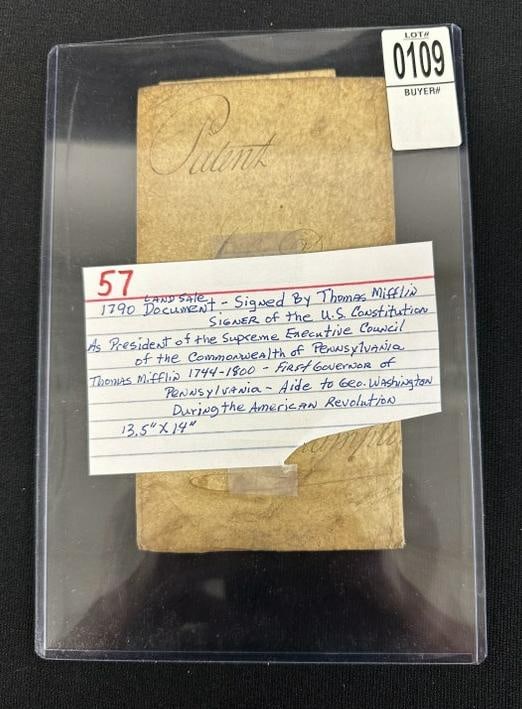 LOT#
0109
BUYER#
Patent
57
LAND SALE
1790 Document - Signed By Thomas Mifflin
SIGNER of the U.S. Constitution
As President of the Supreme Executive Council
of the Commonwealth of Pennsylvania
Thomas Mifflin 1744-1800 - First Governor of
Pennsylvania - Aide to Geo. Washington
During the American Revolution
13.5" X 14"